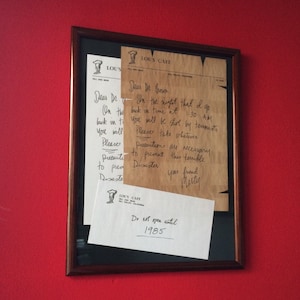 LOU'S CAFE
Dear Dr. Brown
On the night that I go
back in time at 1:30 AM
you will be shot by terrorists
Please take whatever
precautions are necessary
to prevent this terrible
Disaster
your friend
Marty
LOU'S
Dear Dr
On the
back in
you will
Please
to
Disaster
LOU'S CAFE
Do not open until
1985